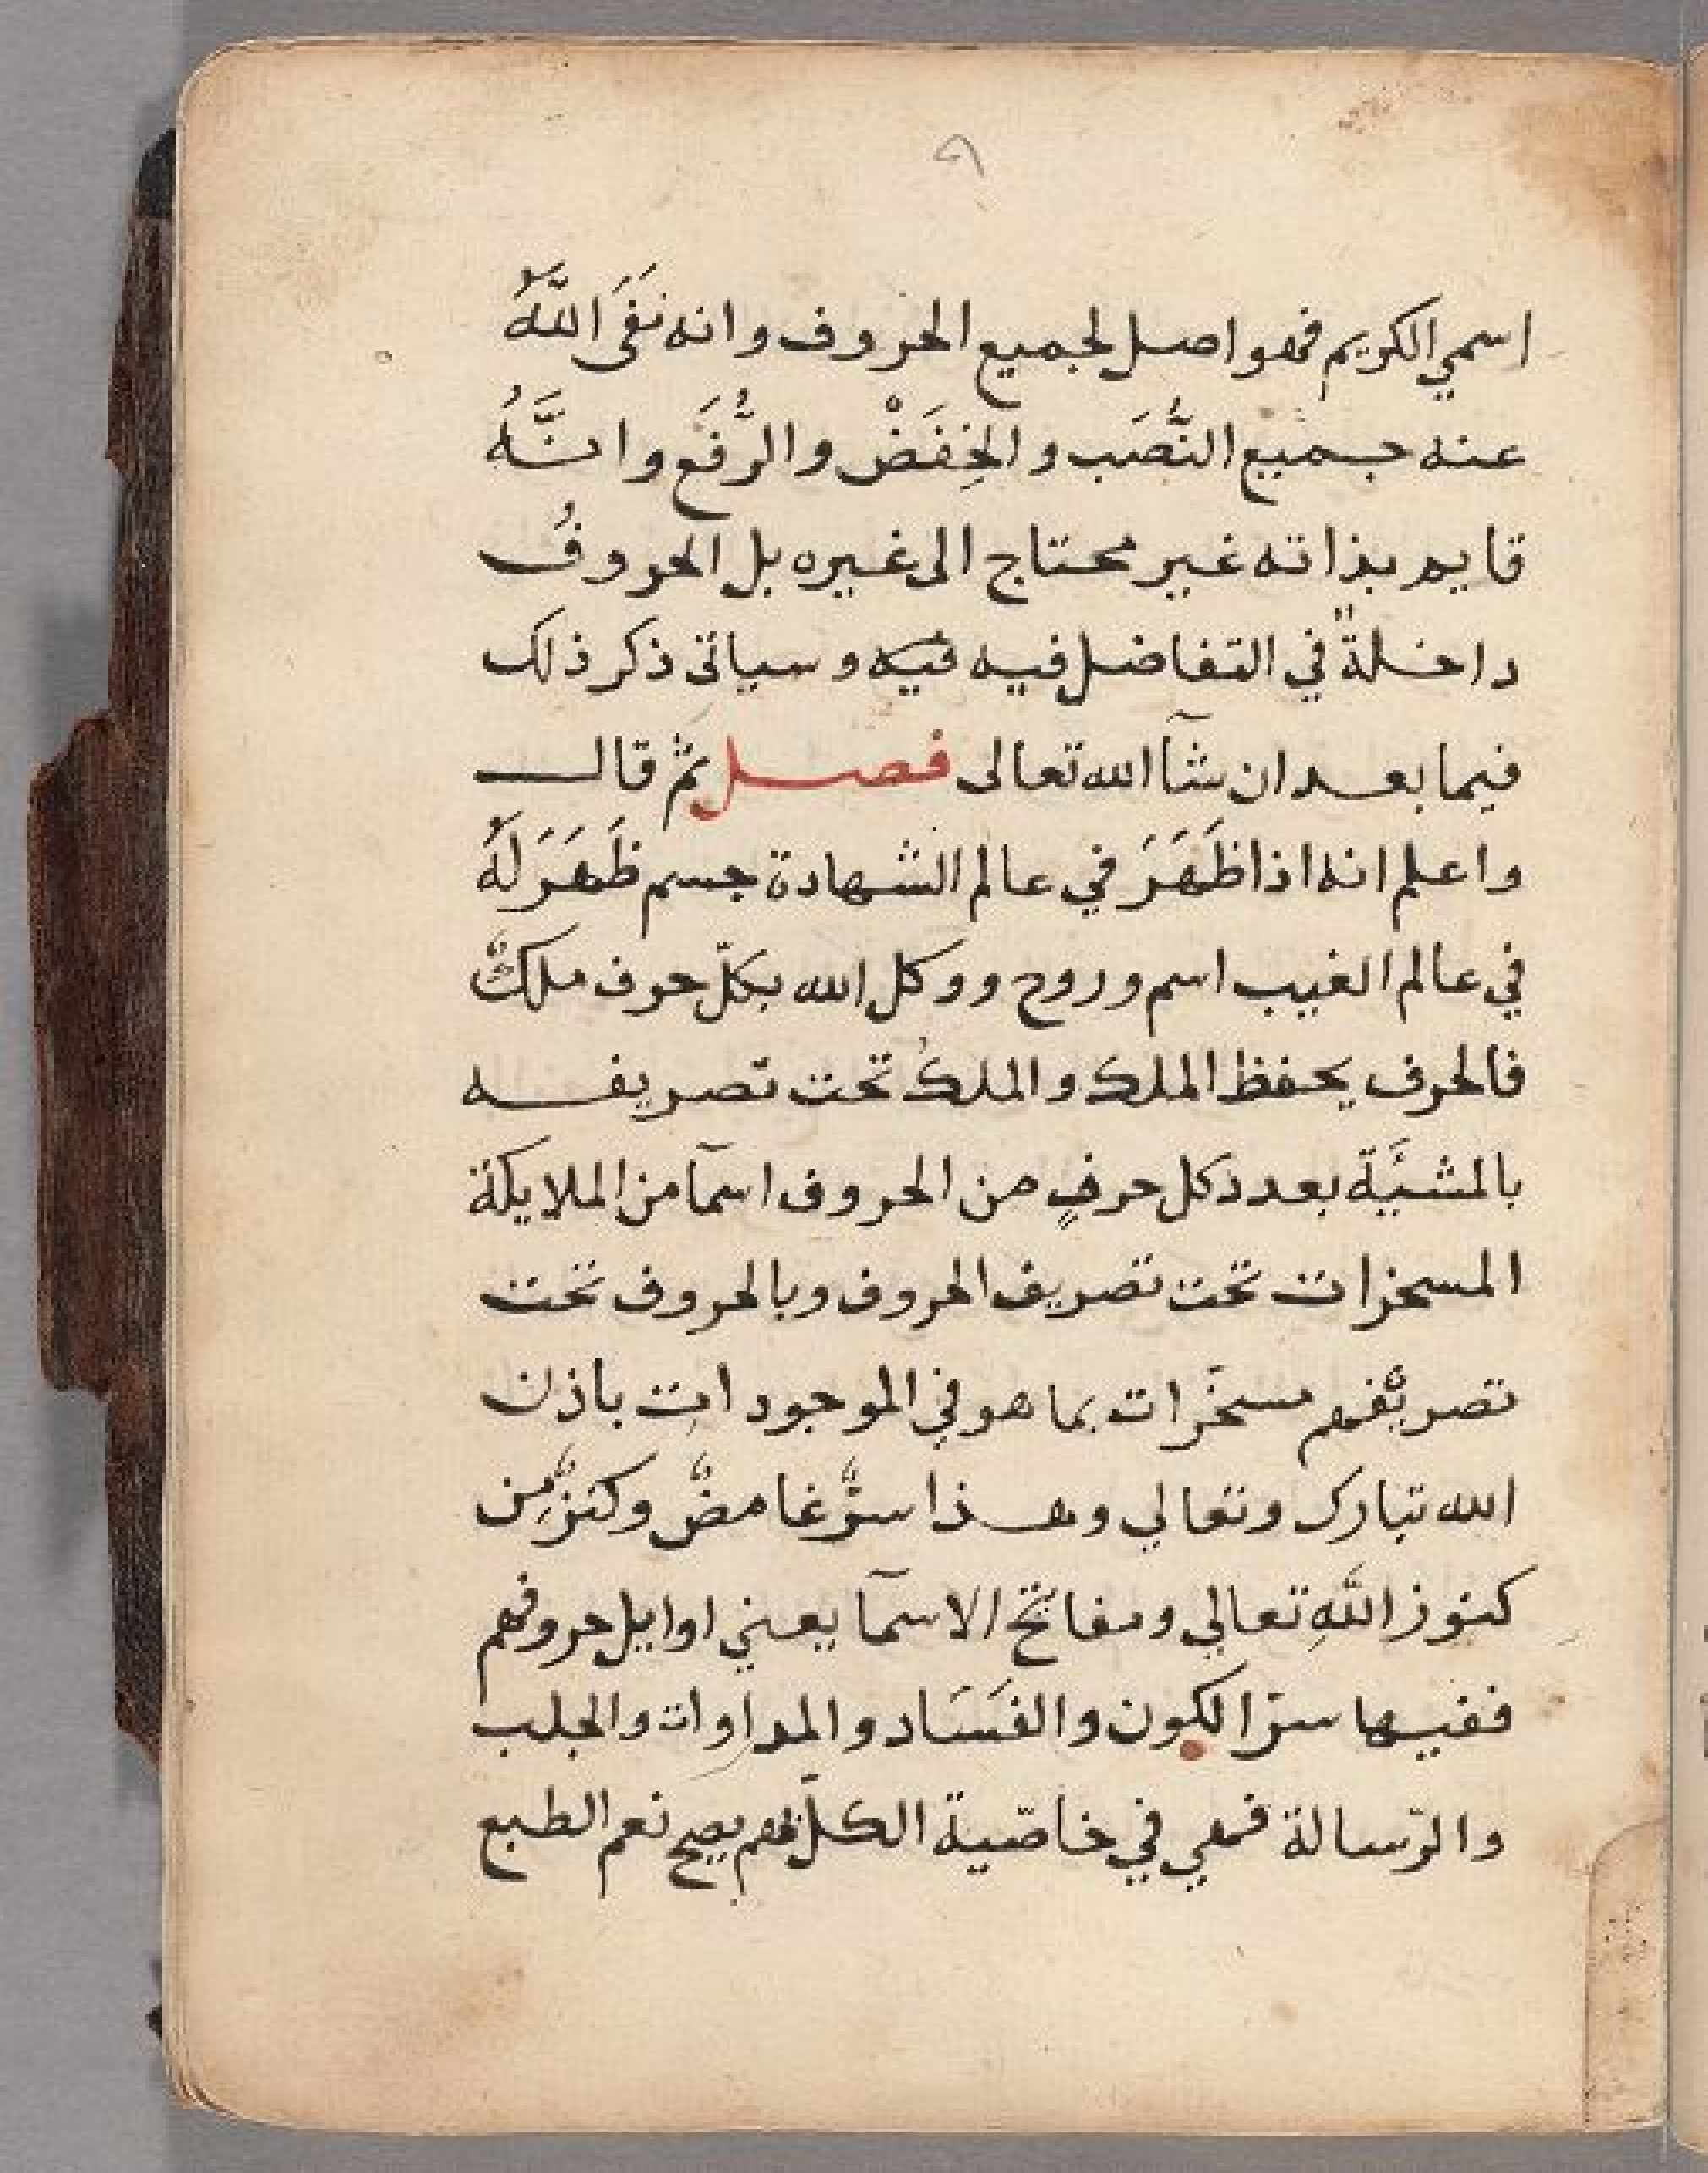 ٩
اسمي الكريم فهو اصل لجميع الحروف وانه نَفَى اللَّهُ
عنه جميع النُّصَب والخِفَضْ والرُّفَع وانَّهُ
قايم بذاته غير محتاج الى غيره بل الحروفُ
داخلةٌ في التفاضل فيه فيه وسياتي ذكر ذلك
فيما بعد ان شآ الله تعالى فصل ثم قال
واعلم انه اذا ظَهَرَ في عالم الشهادة جسم ظَهَرَ لَهُ
في عالم الغيب اسم وروح ووكل الله بكلّ حرف ملكٌ
فالحرف يحفظ الملك والملكُ تحت تصريفه
بالمشيَّة بعدد كل حرفٍ من الحروف اسمآ من الملايكة
المسخرات تحت تصريف الحروف وبالحروف تحت
تصريفهم مسخَرات بما هو في الموجودات باذن
الله تبارك وتعالي وهذا سرٌّ غامضٌ وكنزٌ مِن
كنوز اللَّهِ تعالي ومفاتح الاسمآ يعني اوايل حروفهم
ففيها سرّ الكون والفَسَاد والمداوات والجلب
والرّسالة فهي في خاصّية الكلّ فهم يصح نعم الطبع